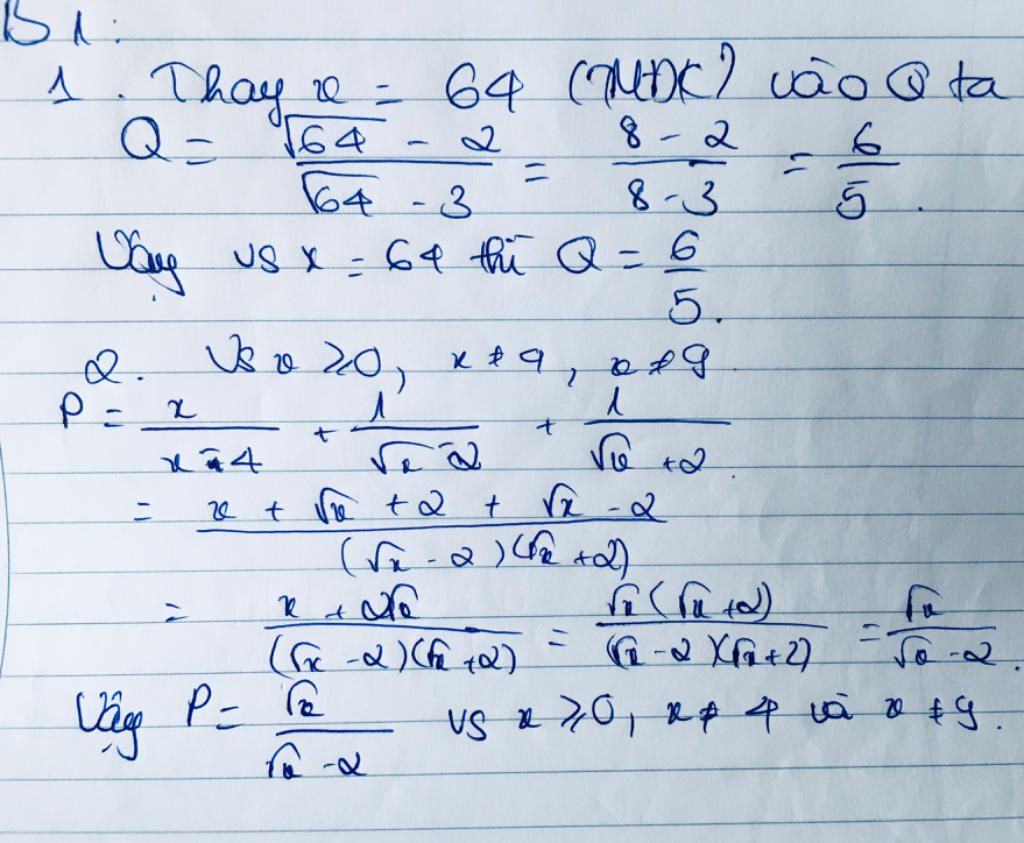 B1:
1. Thay x = 64 (TMĐK) vào Q ta
Q = (√64 - 2)/(√64 - 3) = (8 - 2)/(8 - 3) = 6/5.
Vậy vs x = 64 thì Q = 6/5.
2. Vs x ≥ 0, x ≠ 9, x ≠ 9
P = x/(x - 4) + 1/(√x - 2) + 1/(√x + 2).
= (x + √x + 2 + √x - 2)/((√x - 2)(√x + 2))
= (x + 2√x)/((√x - 2)(√x + 2)) = (√x(√x + 2))/((√x - 2)(√x + 2)) = √x/(√x - 2).
Vậy P = √x/(√x - 2) vs x ≥ 0, x ≠ 4 và x ≠ 9.